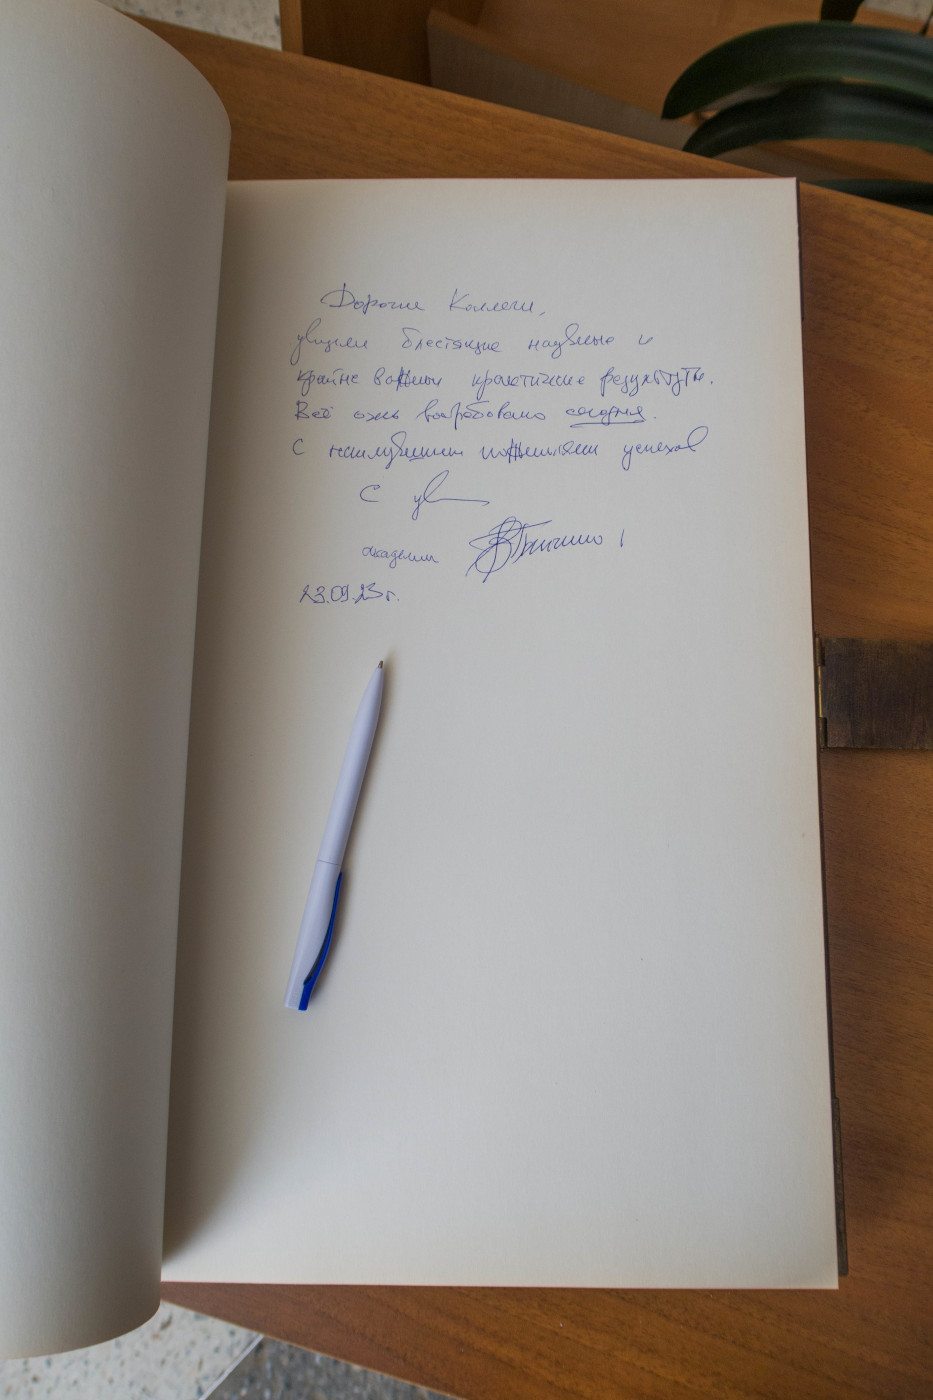 Дорогие Коллеги,
увидели блестящие научные и
крайне важные практические результаты.
Всё очень востребовано сегодня.
С наилучшими пожеланиями успехов
С ув
академик
23.09.23 г.